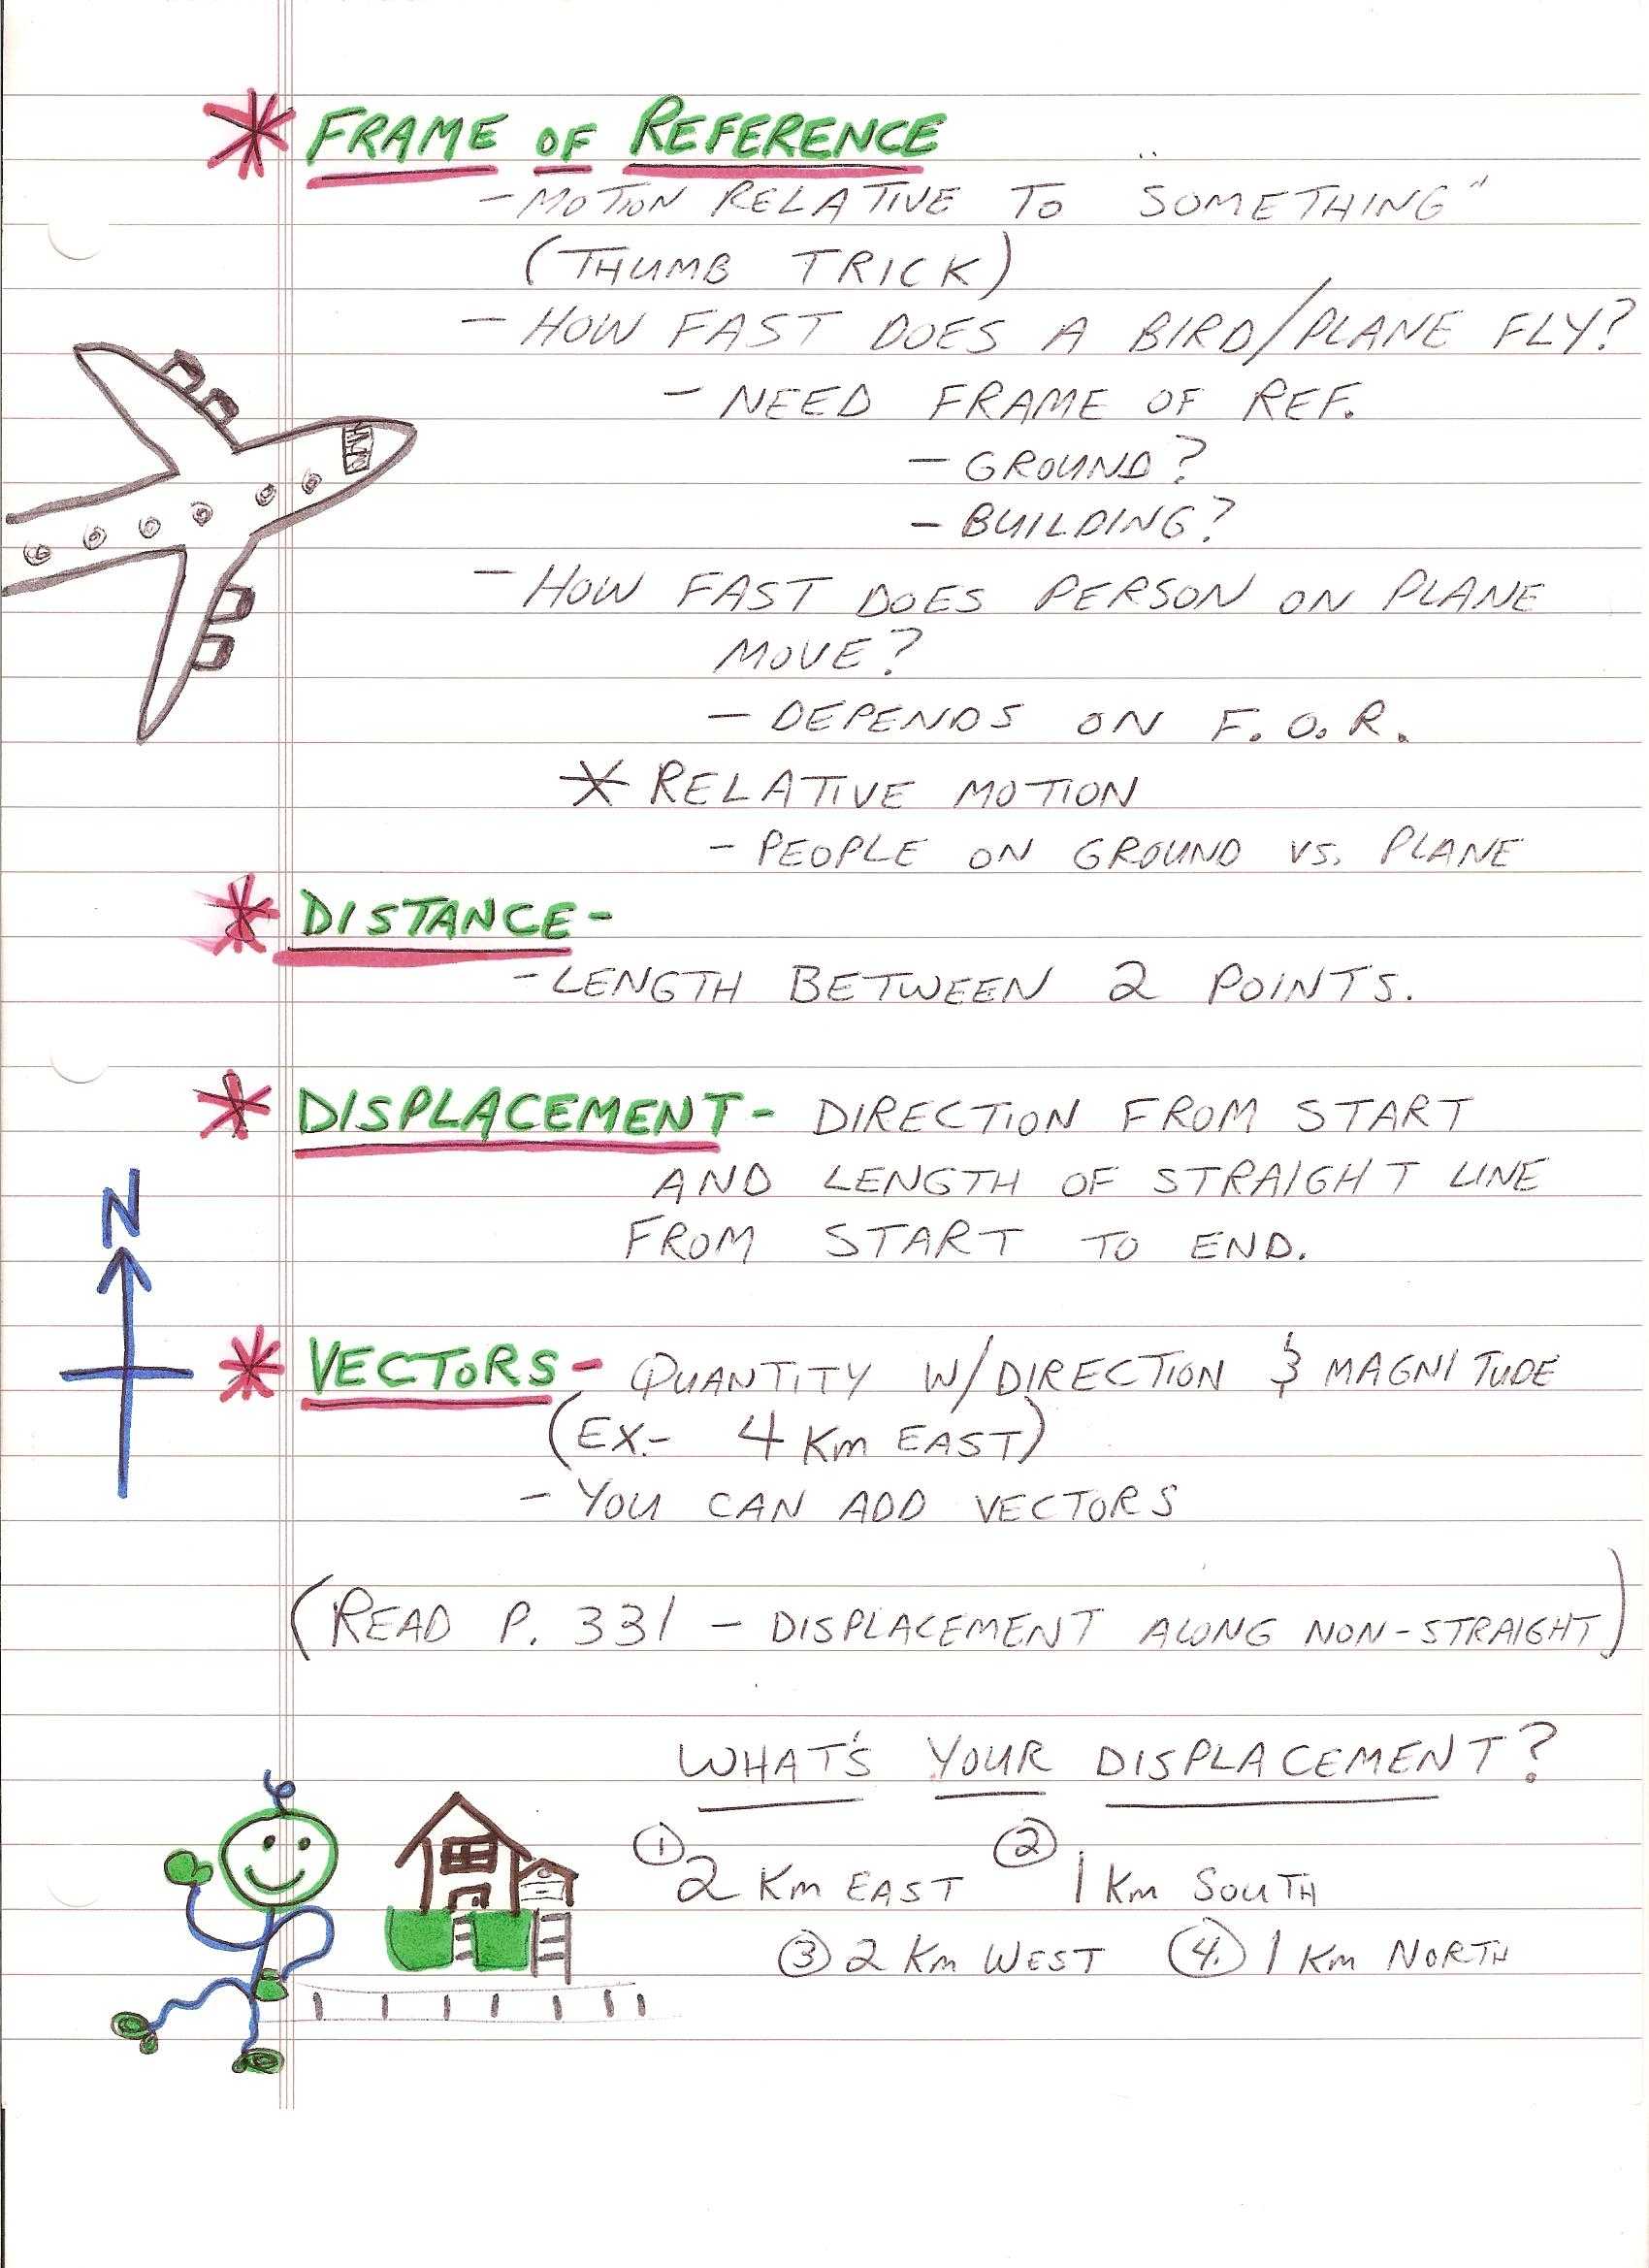 * FRAME OF REFERENCE
- MOTION RELATIVE TO "SOMETHING"
(THUMB TRICK)
- HOW FAST DOES A BIRD/PLANE FLY?
- NEED FRAME OF REF.
- GROUND?
- BUILDING?
- HOW FAST DOES PERSON ON PLANE
MOVE?
- DEPENDS ON F.O.R.
* RELATIVE MOTION
- PEOPLE ON GROUND VS. PLANE
* DISTANCE-
- LENGTH BETWEEN 2 POINTS.
* DISPLACEMENT- DIRECTION FROM START
AND LENGTH OF STRAIGHT LINE
FROM START TO END.
N
* VECTORS- QUANTITY W/DIRECTION & MAGNITUDE
(EX.- 4 Km EAST)
- YOU CAN ADD VECTORS
(READ P. 331 - DISPLACEMENT ALONG NON-STRAIGHT)
WHAT'S YOUR DISPLACEMENT?
① 2 Km EAST ② 1 Km SOUTH
③ 2 Km WEST ④. 1 Km NORTH